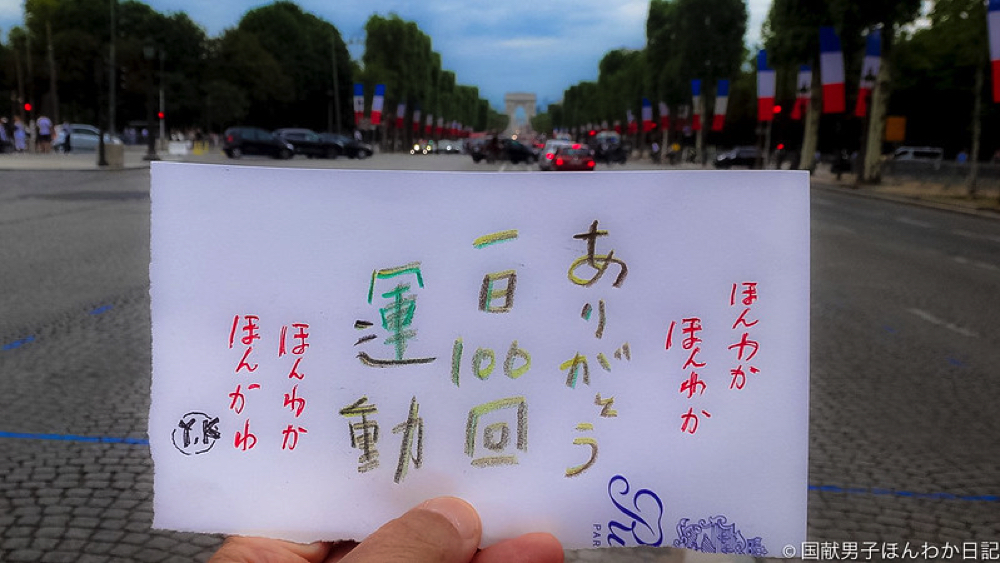 ほんわか
ほんわか
ありがとう
一日100回
運動
ほんわか
ほんがわ
Y.K
PAR
© 国献男子ほんわか日記